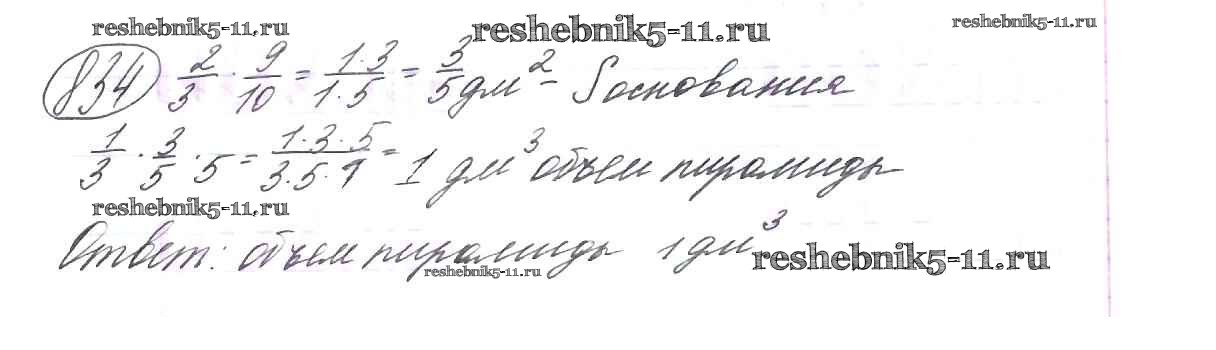 reshebnik5-11.ru reshebnik5-11.ru reshebnik5-11.ru
834) 2/3 · 9/10 = 1·3/1·5 = 3/5 дм² - S основания
1/3 · 3/5 · 5 = 1·3·5/3·5·1 = 1 дм³ объем пирамиды
reshebnik5-11.ru
Ответ: объем пирамиды 1 дм³
reshebnik5-11.ru reshebnik5-11.ru